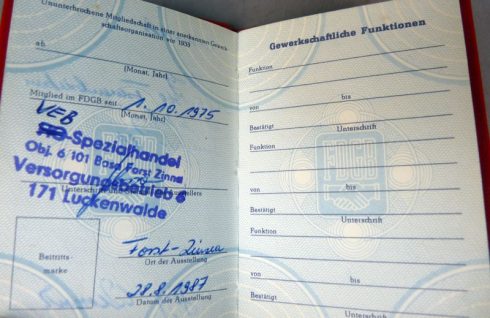 Ununterbrochene Mitgliedschaft in einer anerkannten Gewerk-
schaftsorganisation vor 1933
ab
(Monat, Jahr)
Mitglied im FDGB seit 1. 10. 1975
(Monat, Jahr)
VEB
Spezialhandel
Obj. 6 101 Basa Forst Zinna
Versorgungsbetrieb 6
171 Luckenwalde
Beitritts-
marke
Forst-Zinna
Ort der Ausstellung
28.8.1987
Datum der Ausstellung
Gewerkschaftliche Funktionen
Funktion
von bis
Bestätigt Unterschrift
Funktion
FDGB
von bis
Bestätigt Unterschrift
Funktion
von bis
Bestätigt Unterschrift